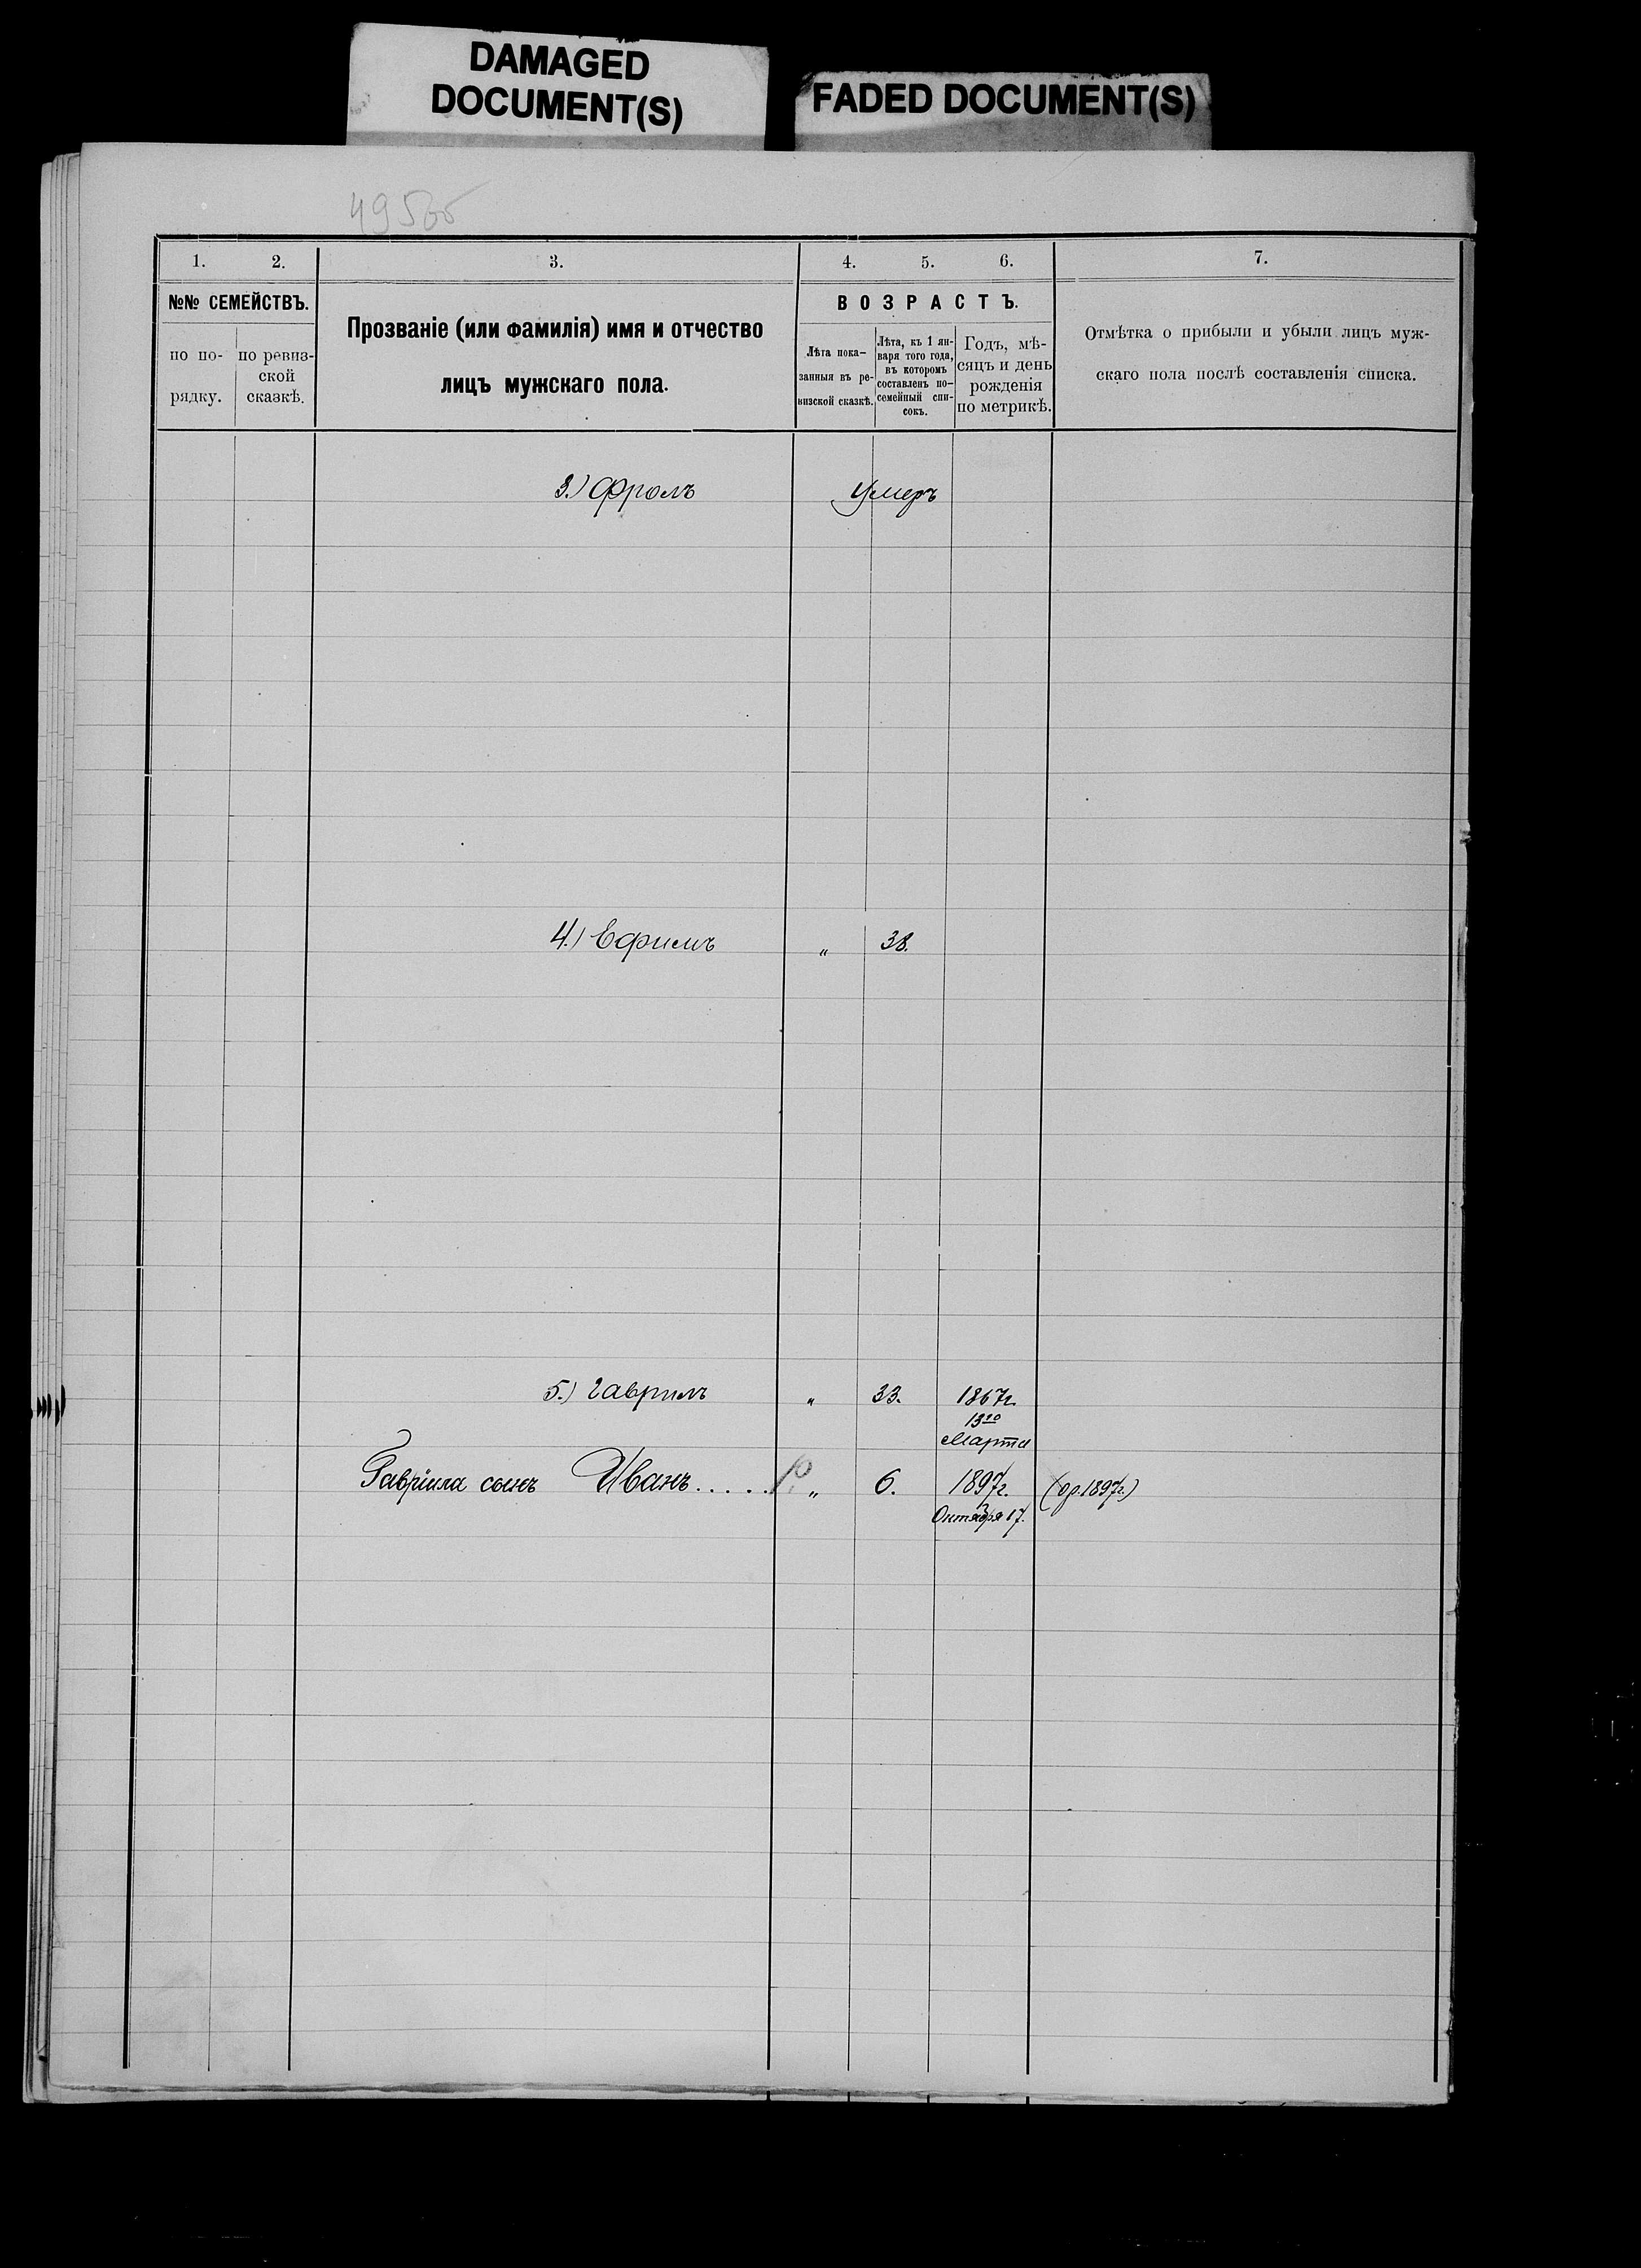 DAMAGED
DOCUMENT(S)
FADED DOCUMENT(S)
1. 2. 3. 4. 5. 6. 7.
№№ СЕМЕЙСТВЪ.
по по-
рядку.
по ревиз-
ской
сказкѣ.
Прозваніе (или фамилія) имя и отчество
лицъ мужскаго пола.
ВОЗРАСТЪ.
Лѣта пока-
занныя въ ре-
визской сказкѣ.
Лѣта, къ 1 ян-
варя того года,
въ которомъ
составленъ по-
семейный спи-
сокъ.
Годъ, мѣ-
сяцъ и день
рожденія
по метрикѣ.
Отмѣтка о прибыли и убыли лицъ муж-
скаго пола послѣ составленія списка.
3.) Фролъ умеръ
4.) Ефимъ „ 38.
5.) Гаврилъ „ 33. 1867г.
13го
Марта
Гавріила сынъ Иванъ..... „ 6. 1897г. (ор. 1897г.)
Октября 17.